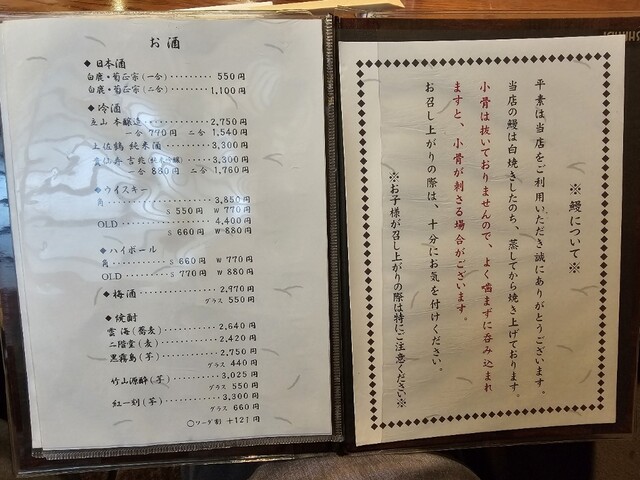 お酒
◆日本酒
白鹿・菊正宗(一合)‥‥‥‥550円
白鹿・菊正宗(二合)‥‥‥‥1,100円
◆冷酒
立山 本醸造‥‥‥‥2,750円
一合 770円 二合 1,540円
土佐鶴 純米酒‥‥‥‥3,300円
吉兆‥‥‥‥3,300円
一合 880円 二合 1,760円
◆ウイスキー
角‥‥‥‥3,850円
S 550円 W 770円
OLD‥‥‥‥4,400円
S 660円 W 880円
◆ハイボール
角‥‥‥‥S 660円 W 770円
OLD‥‥‥‥S 770円 W 880円
◆梅酒‥‥‥‥2,970円
グラス 550円
◆焼酎
雲海(蕎麦)‥‥‥‥2,640円
二階堂(麦)‥‥‥‥2,420円
黒霧島(芋)‥‥‥‥2,750円
グラス 440円
竹山源酔(芋)‥‥‥‥3,025円
グラス 550円
紅一刻(芋)‥‥‥‥3,300円
グラス 660円
〇ソーダ割 +121円
※鰻について※
平素は当店をご利用いただき誠にありがとうございます。
当店の鰻は白焼きしたのち、蒸してから焼き上げております。
小骨は抜いておりませんので、よく噛まずに呑み込まれ
ますと、小骨が刺さる場合がございます。
お召し上がりの際は、十分にお気を付けください。
※お子様が召し上がりの際は特にご注意ください※